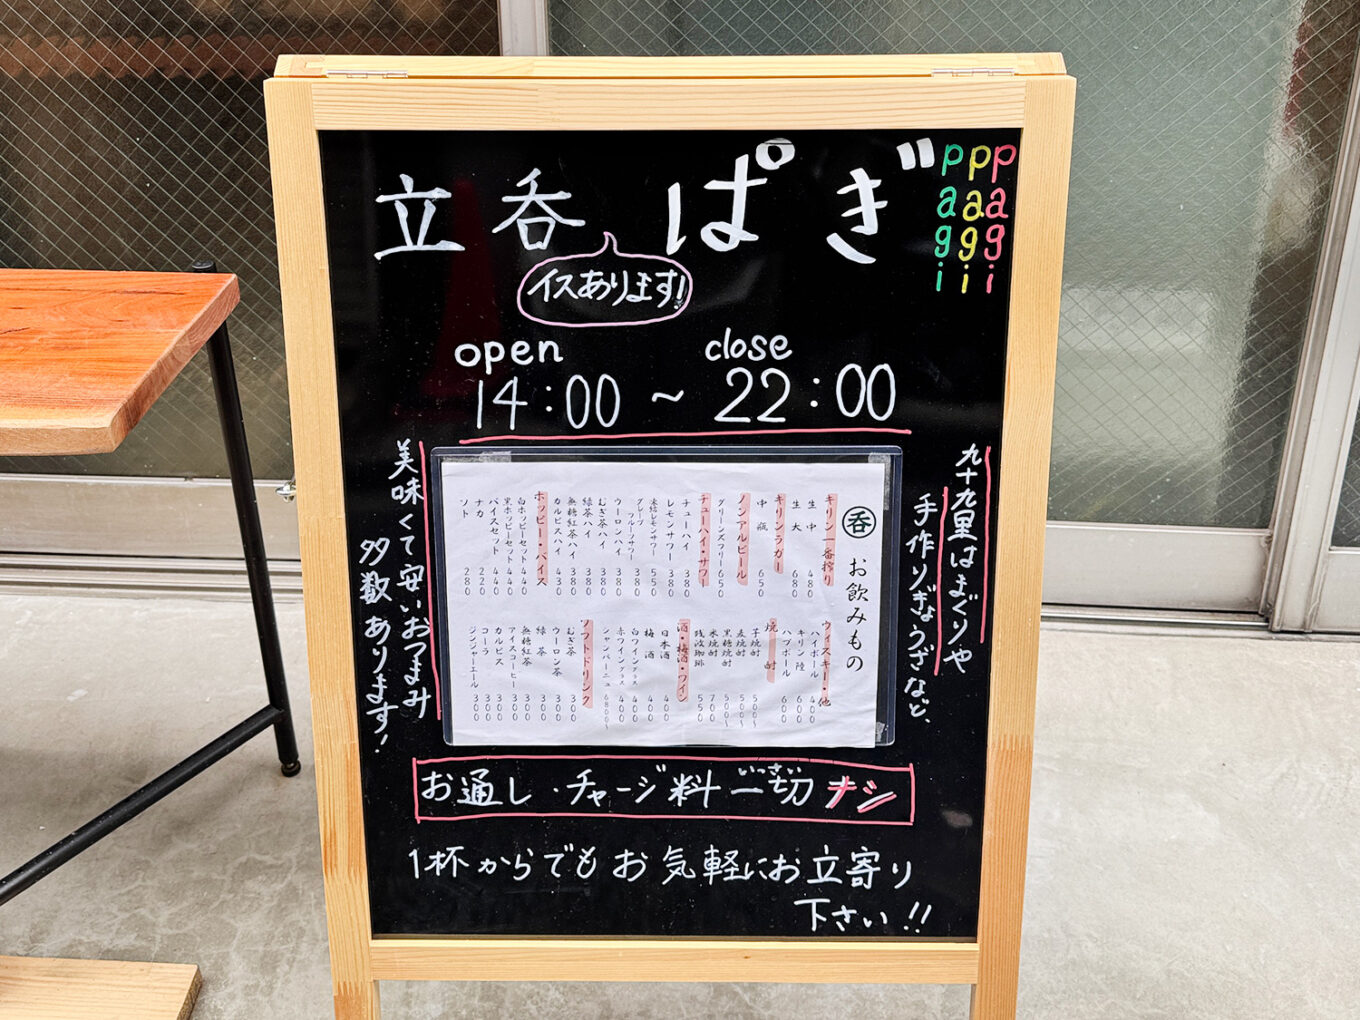 立呑 ぱぎ
pagi pagi pagi
イスあります!
open close
14:00 ~ 22:00
九十九里はまぐりや
手作りぎょうざなど、
美味くて安いおつまみ
多数あります!
呑 お飲みもの
キリン一番搾り
生中 480
生大 680
キリンラガー
中瓶 650
ノンアルビール
グリーンズフリー 650
チューハイ・サワー
チューハイ 380
レモンサワー 380
凍結レモンサワー 550
グレープフルーツサワー 380
ウーロンハイ 380
むぎ茶ハイ 380
緑茶ハイ 380
無糖紅茶ハイ 380
カルピスハイ 430
ホッピー・バイス
白ホッピーセット 440
黒ホッピーセット 440
バイスセット 440
ナカ 220
ソト 280
ウィスキー・他
ハイボール 400
キリン陸 600
ハブボール 600
焼酎
芋焼酎 500~
麦焼酎 500~
黒糖焼酎 500~
米焼酎 700
残波珈琲 550
酒・梅酒・ワイン
日本酒 400
梅酒 400
白ワイングラス 400
赤ワイングラス 400
シャンパーニュ 6800~
ソフトドリンク
むぎ茶 300
ウーロン茶 300
緑茶 300
無糖紅茶 300
アイスコーヒー 300
カルピス 300
コーラ 300
ジンジャーエール 300
お通し・チャージ料一切ナシ
いっさい
1杯からでもお気軽にお立寄り
下さい!!